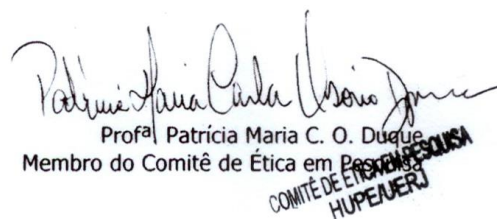 Patrícia Maria Carla Osório Duque
Profª Patrícia Maria C. O. Duque
Membro do Comitê de Ética em Pesquisa
COMITÊ DE ETICA EM PESQUISA
HUPE/UERJ